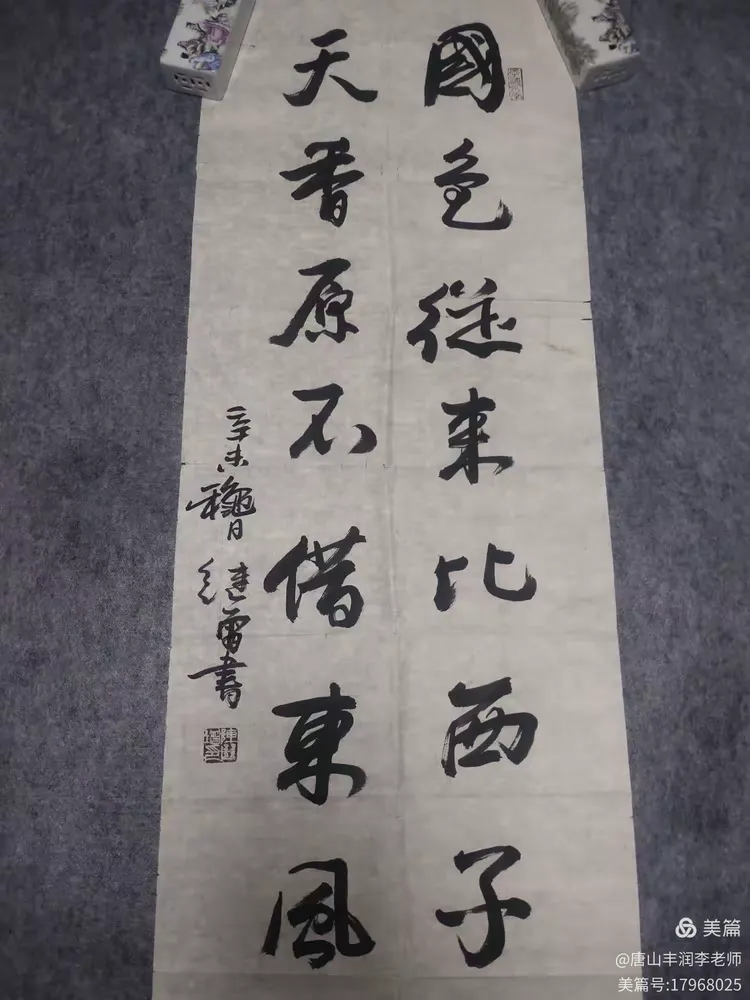 國色從来比西子
天香原不借東風
辛未穐日
继雷書
美篇
@唐山丰润李老师
美篇号:17968025